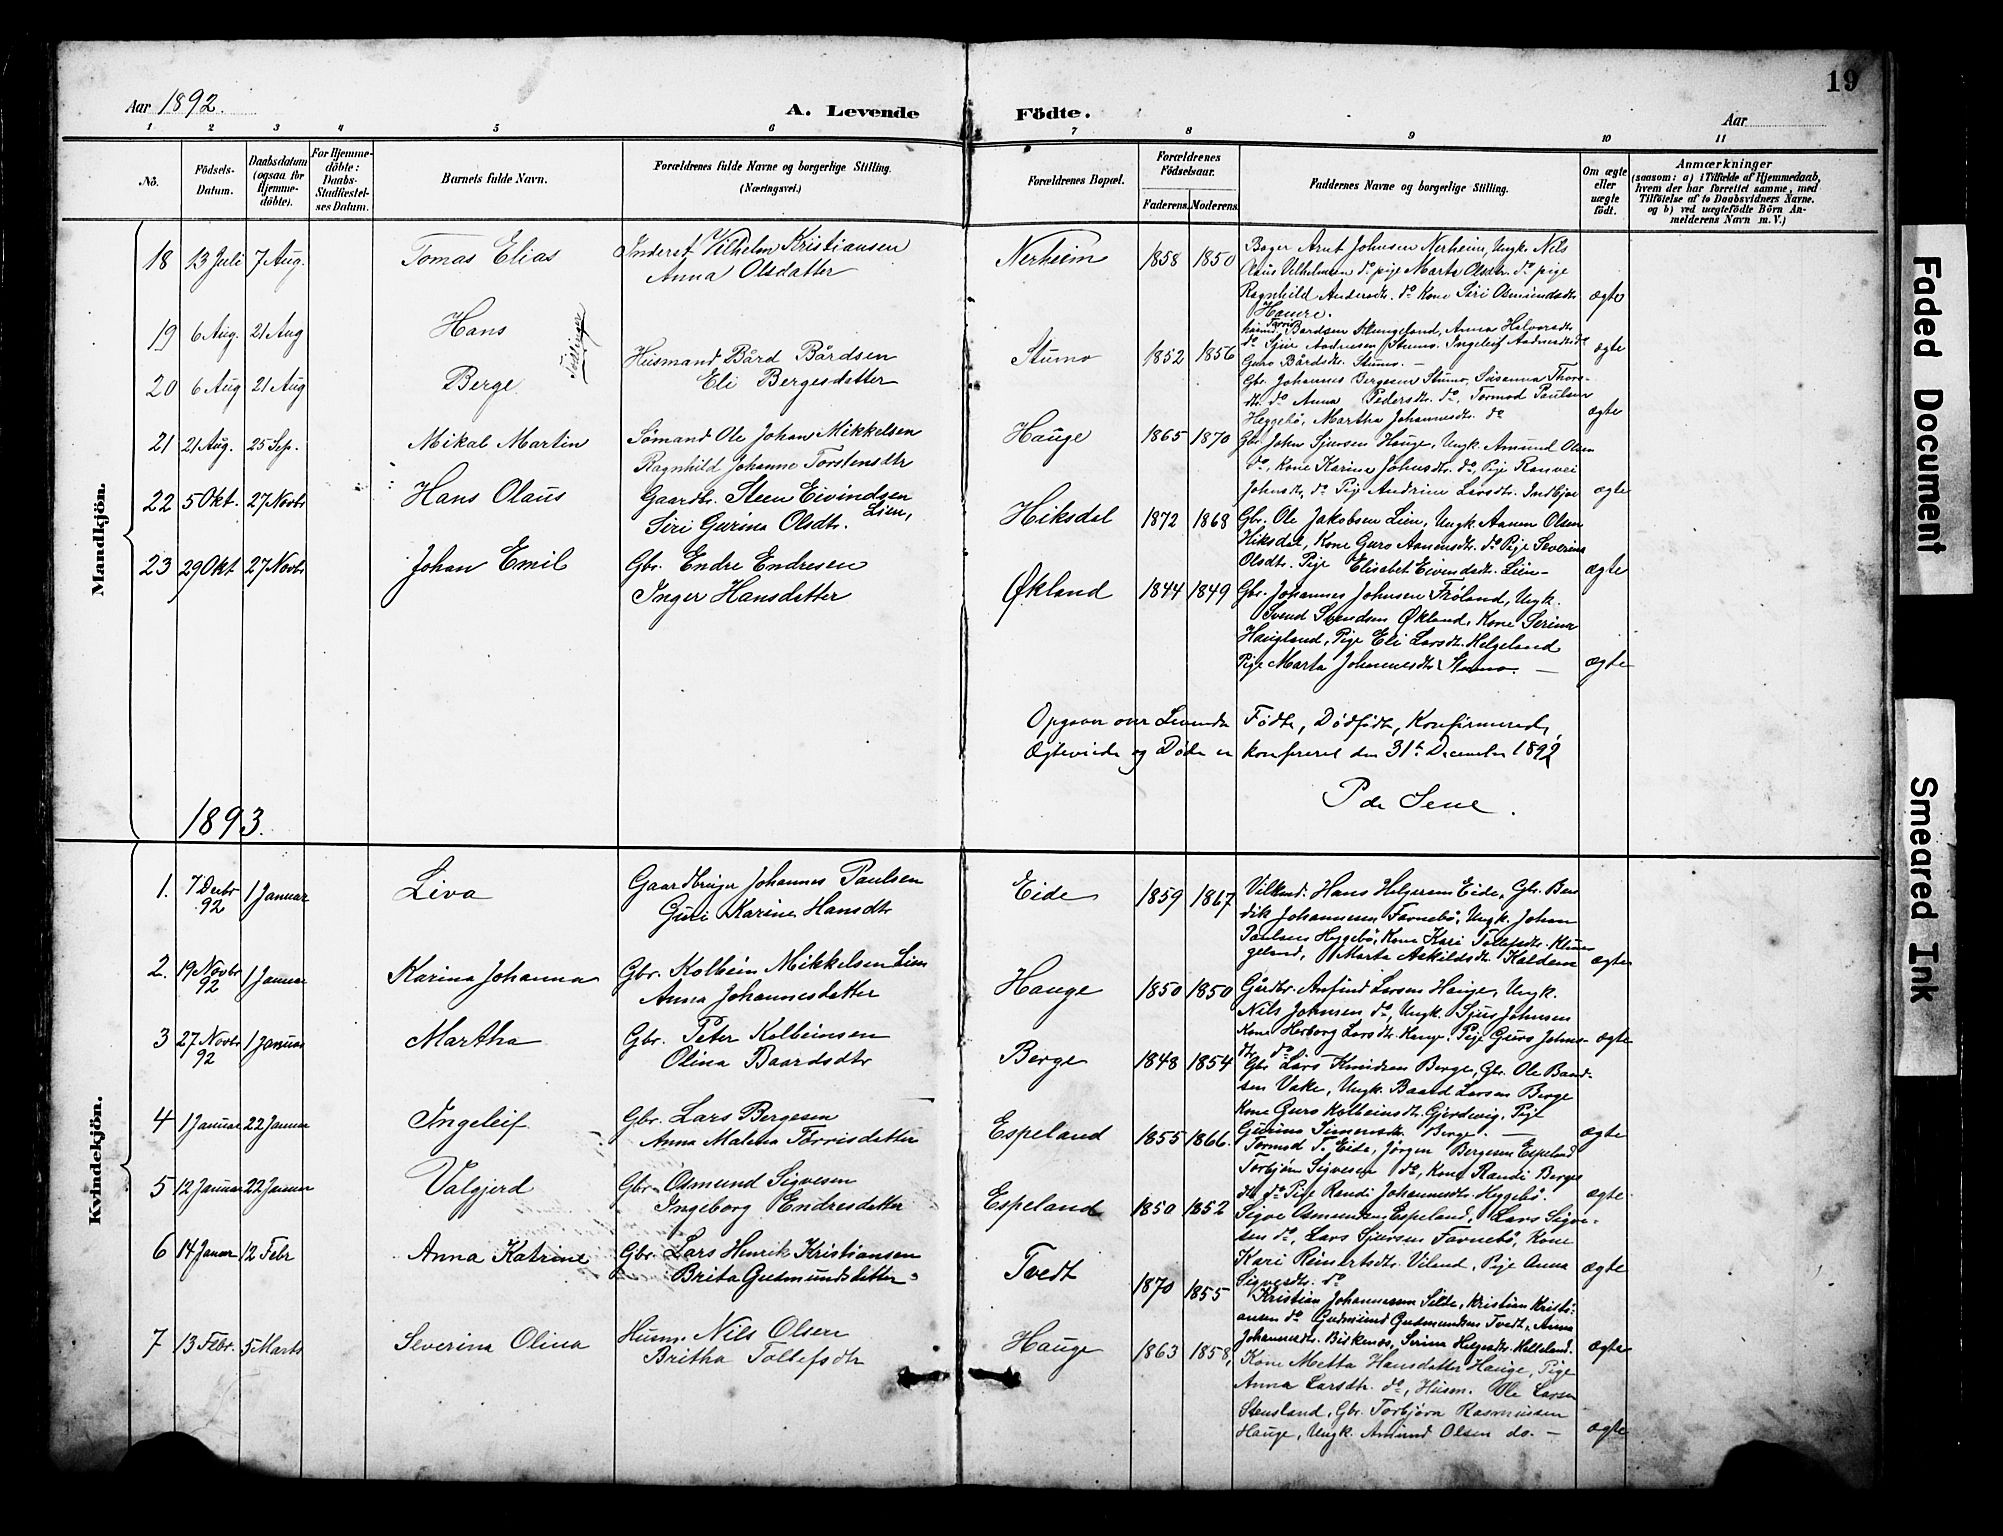 19
Aar 1892.
A. Levende Födte.
Aar
1 2 3 4 5 6 7 8 9 10 11
No.
Födsels-Datum.
Daabsdatum (ogsaa for Hjemme-döbte).
For Hjemme-döbte: Daabs-Stadfæstel-ses Datum.
Barnets fulde Navn.
Forældrenes fulde Navne og borgerlige Stilling. (Næringsvei.)
Forældrenes Bopæl.
Forældrenes Födselsaar.
Faderens. Moderens.
Faddernes Navne og borgerlige Stilling.
Om ægte eller uægte født.
Anmærkninger
(saasom: a) i Tilfælde af Hjemmedaab,
hvem der har forrettet samme, med
Tilföielse af to Daabsvidners Navne.
og b) ved uægtefödte Börn An-
melderens Navn m. V.)
Mandkjön.
18 13 Juli 7 Aug. Tomas Elias Inderst Vilhelm Kristiansen
Anna Olsdatter
Nerheim 1858 1850 Arnt Johnsen Nerheim, Ungk. Nils
Vilhelmsen do pige Marta Olsdtr. do pige
Ragnhild Andersdtr. do Kone Siri Osmundsdtr
ægte
19 6 Aug. 21 Aug Hans
Tvillinger
Husmand Bård Bårdsen
Eli Bergesdatter
Stumo 1852 1856
Bårdsen Klungeland, Anna Halvorsdtr
do Sjur Andersen Stumo. Ingeleif
Guro Bårdsdtr. Stumo. —
ægte
20 6 Aug 21 Aug Berge
Gbr. Johannes Bergesen Stumo, Susanna Thors-
dtr. do Anna Pedersdtr. do, Tormod Paulsen
Heggebö, Martha Johannesdtr. do
ægte
21 21 Aug. 25 Sep. Mikal Martin Sömand Ole Johan Mikkelsen
Ragnhild Johanne Torstensdtr
Hauge 1865 1870 Gbr. John Sjursen Hauge, Ungk. Amund Olsen
do, Kone Karina Johnsdtr. do, Pige Ranvei
Johnsdtr, do Pige Andrine Larsdtr. Indbjoe
ægte
22 5 Okt. 27 Novbr Hans Olaus Gaardbr. Steen Eivindsen Lien,
Siri Gurina Olsdtr.
Hiksdal 1872 1868 Gbr. Ole Jakobsen Lien, Ungk. Aanen Olsen
Hiksdal, Kone Guro Aanensdtr. do Pige Severina
Olsdtr. Pige Elisabet Eivindsdtr. Lien—
ægte
23 29 Okt 27 Novbr Johan Emil Gbr. Endre Endresen
Inger Hansdatter
Økland 1844 1849 Gbr. Johannes Johnsen Fröland, Ungk.
Svend Svendsen Økland, Kone Serina
Haugland, Pige Eli Larsdtr. Helgeland
Pige Marta Johannesdtr. Stumo. —
ægte
Opgaver over Levende Födte, Dödfödte, Konfirmerede,
Ægteviede og Döde er konfereret den 31te December 1892
P de Seue.
1893.
Kvindekjön.
1. 7 Decbr 92 1 Januar Liva Gaardbruger Johannes Paulsen
Guri Karine Hansdtr
Eide 1859 1867 Hans Helgesen Eide, Gbr. Ben
dik Johannesen Favnebö, Ungk. Johan
Paulsen Heggebö, Kone Kari Tollefsdtr. Klun-
geland, Marta Askildsdtr.
ægte
2. 19 Novbr 92 1 Januar Karina Johanna Gbr. Kolbein Mikkelsen Lien
Anna Johannesdatter
Hauge 1850 1850 Gårdbr. Anfind Larsen Hauge, Ungk.
Nils Johnsen do, Ungk. Sjur Johnsen
Kone Herborg Larsdtr. Hauge. Pige Guro Johns-
dtr. do
ægte
3 27 Novbr 92 1 Januar Martha Gbr. Peter Kolbeinsen
Olina Baardsdtr
Berge 1848 1854 Gbr Lars Knudsen Berge, Gbr. Ole Baard-
sen Vake, Ungk. Baard Larsen Berge
Kone Guro Kolbeinsdtr. Gjerdevig, Pige
Gurina Simensdtr. Berge. —
ægte
4 1 Januar 22 Januar Ingeleif Gbr. Lars Bergesen
Anna Malena Torrisdatter
Espeland 1855 1866. Tormod T. Eide, Jörgen Bergesen Espeland
Torbjörn Sigvesen do, Kone Randi Berges
dtr. do Pige Randi Johannesdtr. Heggebö.
ægte.
5 12 Januar 22 Januar Valgjerd Gbr. Osmund Sigvesen
Ingeborg Endresdatter
Espeland 1850 1852 Sigve Osmundsen Espeland, Lars Sigve-
sen do, Lars Sjursen Favnebö, Kone
Kari Reinertsdtr. Viland, Pige Anna
Sigvesdtr. do
ægte
6 14 Januar 12 Febr Anna Katrine Gbr. Lars Henrik Kristiansen
Brita Gudmundsdatter
Tvedt 1870 1855 Kristian Johannesen Silde, Kristian Kristi-
ansen do Gudmund Gudmundsen Tvedt, Anna
Johannesdtr. Birkenes, Serina Helgesdtr.
ægte
7 13 Febr. 5 Marts Severina Olina Husm. Nils Olsen
Britha Tollefsdtr
Hauge 1863 1858, Kone Metta Hansdatter Hauge, Pige
Anna Larsdtr. do, Husm. Ole Larsen
Stensland, Gbr. Torbjörn Rasmussen
Hauge, Ungk. Amund Olsen do. —
ægte
Faded Document
Smeared Ink